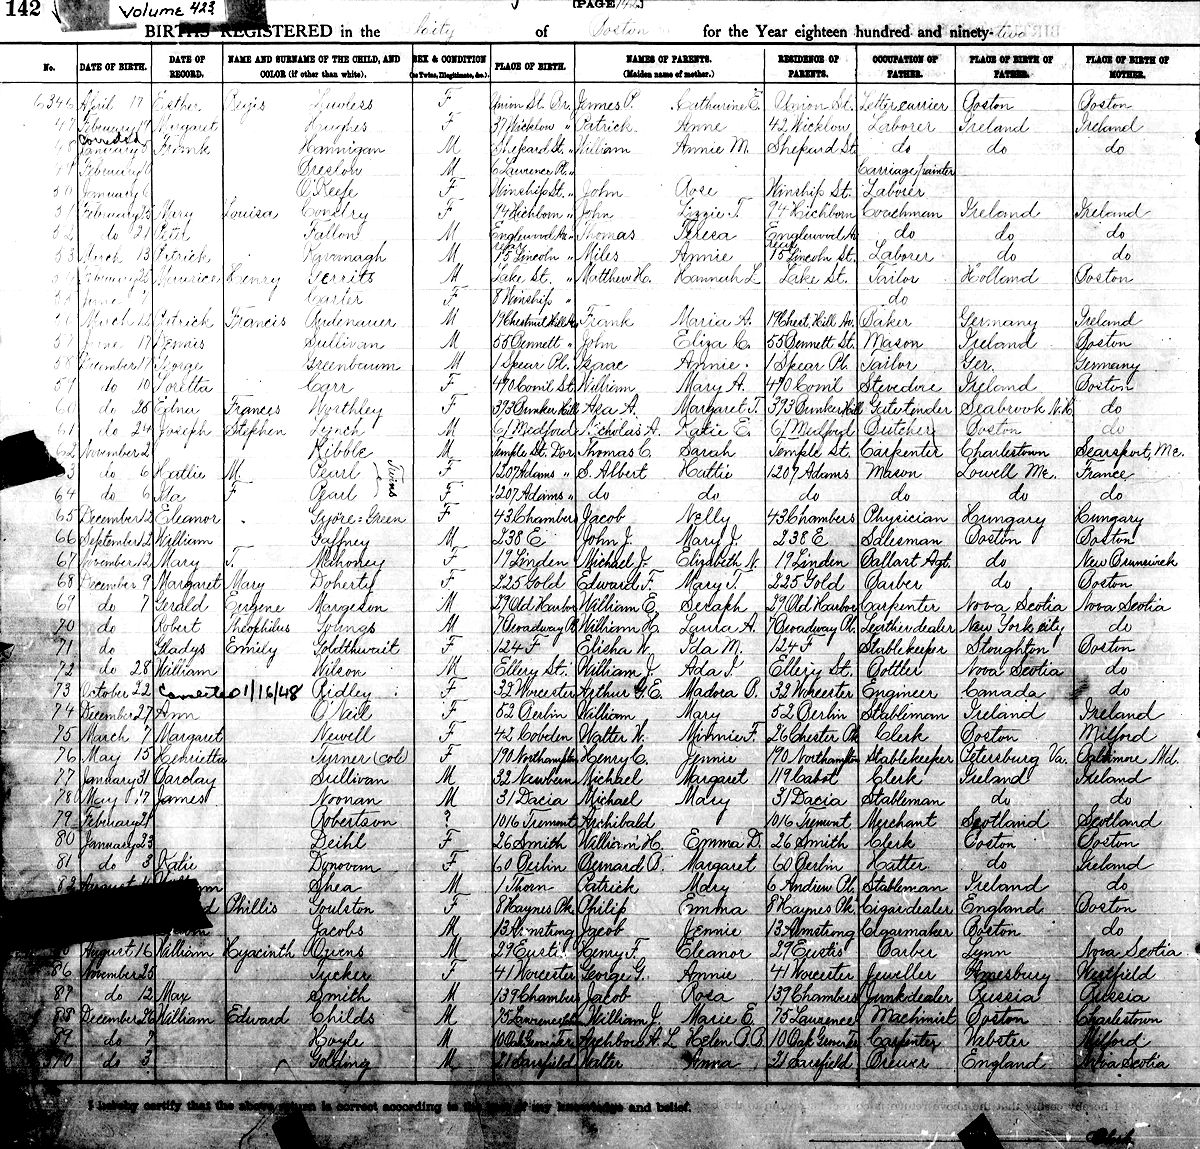 142 Volume 423 [PAGE 142]
BIRTHS REGISTERED in the City of Boston for the Year eighteen hundred and ninety-two
No. DATE OF BIRTH. DATE OF RECORD. NAME AND SURNAME OF THE CHILD, AND COLOR (if other than white). SEX & CONDITION (as Twins, Illegitimate, &c.). PLACE OF BIRTH. NAMES OF PARENTS. (Maiden name of mother.) RESIDENCE OF PARENTS. OCCUPATION OF FATHER. PLACE OF BIRTH OF FATHER. PLACE OF BIRTH OF MOTHER.
6346 April 17 Esther Regis Lawless F Union St. Br. James P. Catharine E. Union St. Letter carrier Boston Boston
47 February 14 Margaret Hughes F 37 Wicklow " Patrick Anne 42 Wicklow Laborer Ireland Ireland
Corrected
48 January Frank Hannigan M Shepard St. " William Annie M. Shepard St. do do do
49 February Breslon M 6 Lawrence Pl. " Carriage painter
50 January 6 O'Keefe F Winship St. " John Rose Winship St. Laborer
51 February 25 Mary Louisa Condry F 94 Hichborn " John Lizzie T. 94 Hichborn Coachman Ireland Ireland
52 do 21 Peter Fallon M Englewood Av " Thomas Teresa Englewood Av do do do
53 March 13 Patrick Kavanagh M rear 15 Lincoln " Miles Annie rear 15 Lincoln St. Laborer do do
54 February 25 Maurice Henry Gerrits M Lake St. " Matthew H. Hannah L Lake St. Tailor Holland Boston
55 June Carter F 8 Winship " do
56 March 12 Patrick Francis Audenauer M 19 Chestnut Hill Av Frank Maria A. 19 Chest. Hill Av. Baker Germany Ireland
57 June 17 Dennis Sullivan M 55 Bennett " John Eliza C. 55 Bennett St. Mason Ireland Boston
58 December 11 George Greenbaum M 1 Spear Pl. Isaac Annie 1 Spear Pl. Tailor Ger. Germany
59 do 10 Loretta Carr F 490 Coml St. William Mary A. 490 Coml Stevedore Ireland Boston
60 do 26 Edna Frances Worthley F 393 Bunker Hill Asa A. Margaret T. 393 Bunker Hill Gatetender Seabrook N.H. do
61 do 24 Joseph Stephen Lynch M 61 Medford Nicholas A. Katie E. 61 Medford Butcher Boston do
62 November 2 Kibble M Temple St. Dor. Thomas C. Sarah Temple St. Carpenter Charlestown Searsport, Me.
63 do 6 Hattie M. Pearl Twins F 1207 Adams " S. Albert Hattie 1207 Adams Mason Lowell Me. France
64 do 6 Ida F Pearl F 1207 Adams " do do do do do do
65 December 12 Eleanor Györe=Green F 43 Chambers Jacob Nelly 43 Chambers Physician Hungary Hungary
66 September 12 William Gaffney M 238 E John J. Mary J. 238 E Salesman Boston Boston
67 November 12 Mary T. Mahoney F 19 Linden Michael J. Elizabeth N. 19 Linden Ballast Agt. do New Brunswick
68 December 9 Margaret Mary Doherty F 225 Gold Edward F. Mary T. 225 Gold Barber do Boston
69 do 7 Gerald Eugene Margeson M 29 Old Harbor William E. Seraph 29 Old Harbor Carpenter Nova Scotia Nova Scotia
70 do Robert Theophilus Youngs M 7 Broadway Pl. William H. Laura A. 7 Broadway Pl. Leather dealer New York city do
71 do Gladys Emily Goldthwait F 124 F Elisha W. Ida M. 124 F Stablekeeper Stoughton Boston
72 do 28 William Wilson M Ellery St. William J. Ada J. Ellery St. Bottler Nova Scotia do
73 October 22 Corrected 01/16/48 Ridley F 32 Worcester Arthur G. E. Madora P. 32 Worcester Engineer Canada do
74 December 27 Ann O'Neil F 52 Berlin William Mary 52 Berlin Stableman Ireland Ireland
75 March 7 Margaret Newell F 42 Cobden Walter W. Minnie F. 26 Chester Pk Clerk Boston Milford
76 May 15 Henrietta Turner (col) F 190 Northampton Henry C. Jennie 190 Northampton Stablekeeper Petersburg Va. Baltimore Md.
77 January 31 Barclay Sullivan M 32 Newbern Michael Margaret 119 Cabot Clerk Ireland Ireland
78 May 17 James Noonan M 31 Dacia Michael Mary 31 Dacia Stableman do do
79 February 21 Robertson ? 1016 Tremont Archibald 1016 Tremont Merchant Scotland Scotland
80 January 23 Deihl F 26 Smith William H. Emma D. 26 Smith Clerk Boston Boston
81 do 3 Katie Donovan F 60 Berlin Bernard B. Margaret 60 Berlin Hatter do Ireland
82 August Shea M 1 Thorn Patrick Mary 6 Andrew Pl. Stableman Ireland do
Phillis Goulston F 8 Haynes Pk Philip Emma 8 Haynes Pk Cigar dealer England Boston
Jacobs M 13 Armstrong Jacob Jennie 13 Armstrong Cigarmaker Boston do
August 16 William Hyacinth Owens M 29 Eustis Henry F. Eleanor 29 Eustis Barber Lynn Nova Scotia
86 November 25 Tucker F 41 Worcester George G. Annie 41 Worcester Jeweller Amesbury Westfield
87 do 12 Max Smith M 139 Chambers Jacob Rosa 139 Chambers Junkdealer Russia Russia
88 December 26 William Edward Childs M 75 Lawrence William J. Marie E. 75 Laurence Machinist Boston Charlestown
89 do 9 Hoyle M 10 Oak Grove Ter Archbord A. L Helen B. B. 10 Oak Grove Ter Carpenter Webster Milford
do 3 Golding M 21 Sarsfield Walter Anna 21 Sarsfield Brewer England Nova Scotia
I hereby certify that the above return is correct according to the best of my knowledge and belief.
Clerk